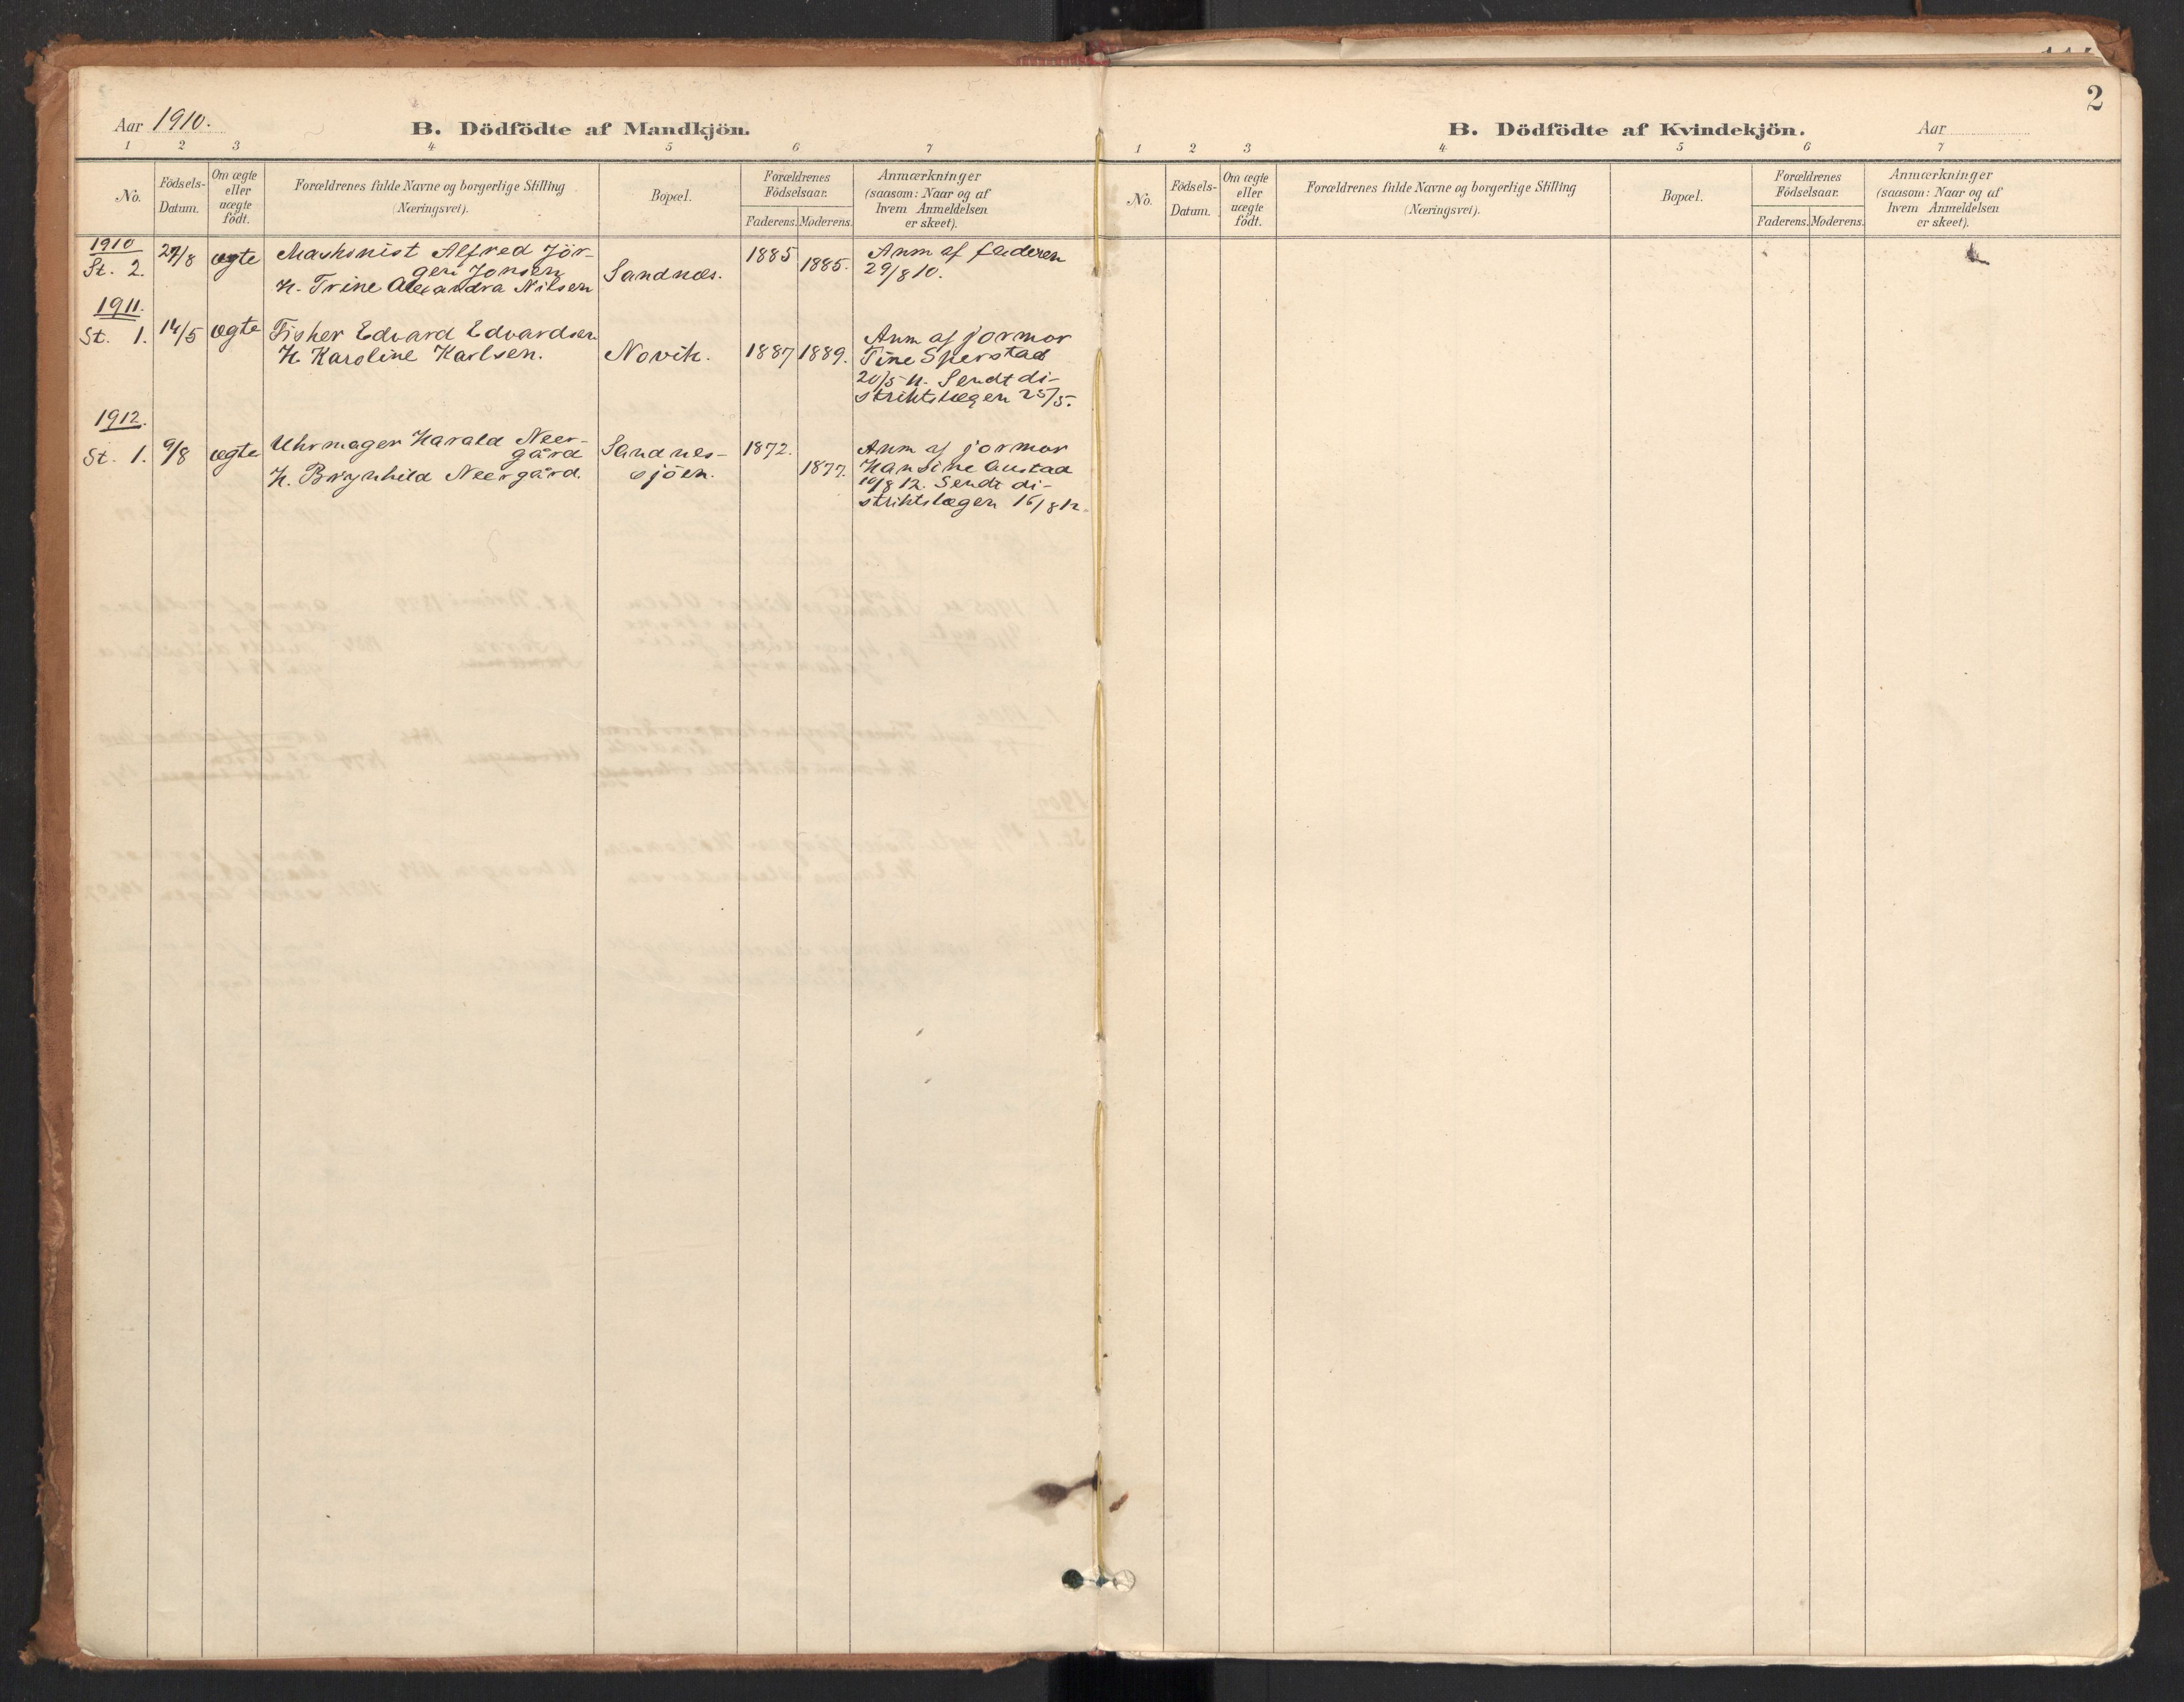 Aar 1910.
B. Dödfödte af Mandkjön.
1 2 3 4 5 6 7
No.
Födsels-Datum.
Om ægte eller uægte födt.
Forældrenes fulde Navne og borgerlige Stilling (Næringsvei).
Bopæl.
Forældrenes Födselsaar.
Faderens. Moderens.
Anmærkninger (saasom: Naar og af hvem Anmeldelsen er skeet).
1910
St. 2. 27/8 ægte Maskinist Alfred Jör-
gen Jonsen
H. Trine Alexandra Nilsen
Sandnæs.
1885 1885.
Anm af faderen
29/8 10.
1911.
St. 1. 14/5 ægte Fisker Edvard Edvardsen
H. Karoline Karlsen.
Novik.
1887 1889.
Anm af jormor
Tine Sperstad
20/5 11. Sendt di-
striktslægen 25/5.
1912.
St. 1. 9/8 ægte Uhrmager Harald Neer-
gård
H. Brynhild Neergård.
Sandnes-
sjöen.
1872. 1877.
Anm af jormor
Hansine Austad
10/8 12. Sendt di-
striktslægen 16/8 12.
2
B. Dödfödte af Kvindekjön.
Aar
1 2 3 4 5 6 7
No.
Födsels-Datum.
Om ægte eller uægte födt.
Forældrenes fulde Navne og borgerlige Stilling (Næringsvei).
Bopæl.
Forældrenes Födselsaar.
Faderens. Moderens.
Anmærkninger (saasom: Naar og af hvem Anmeldelsen er skeet).